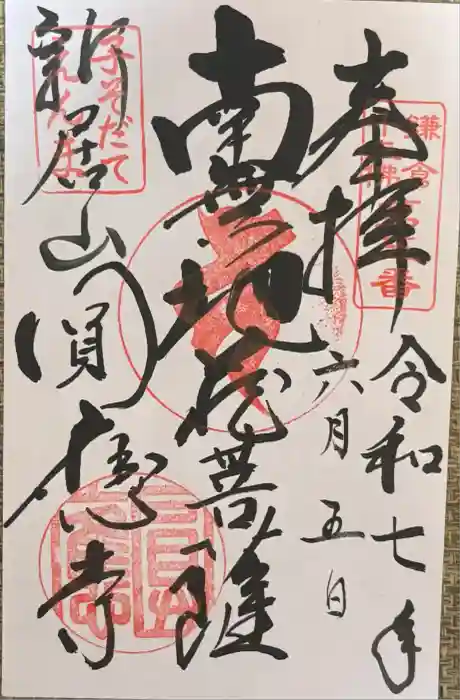 奉拝
令和七年
六月五日
南無地蔵菩薩
新居山
圓應寺
子そだて
えんま